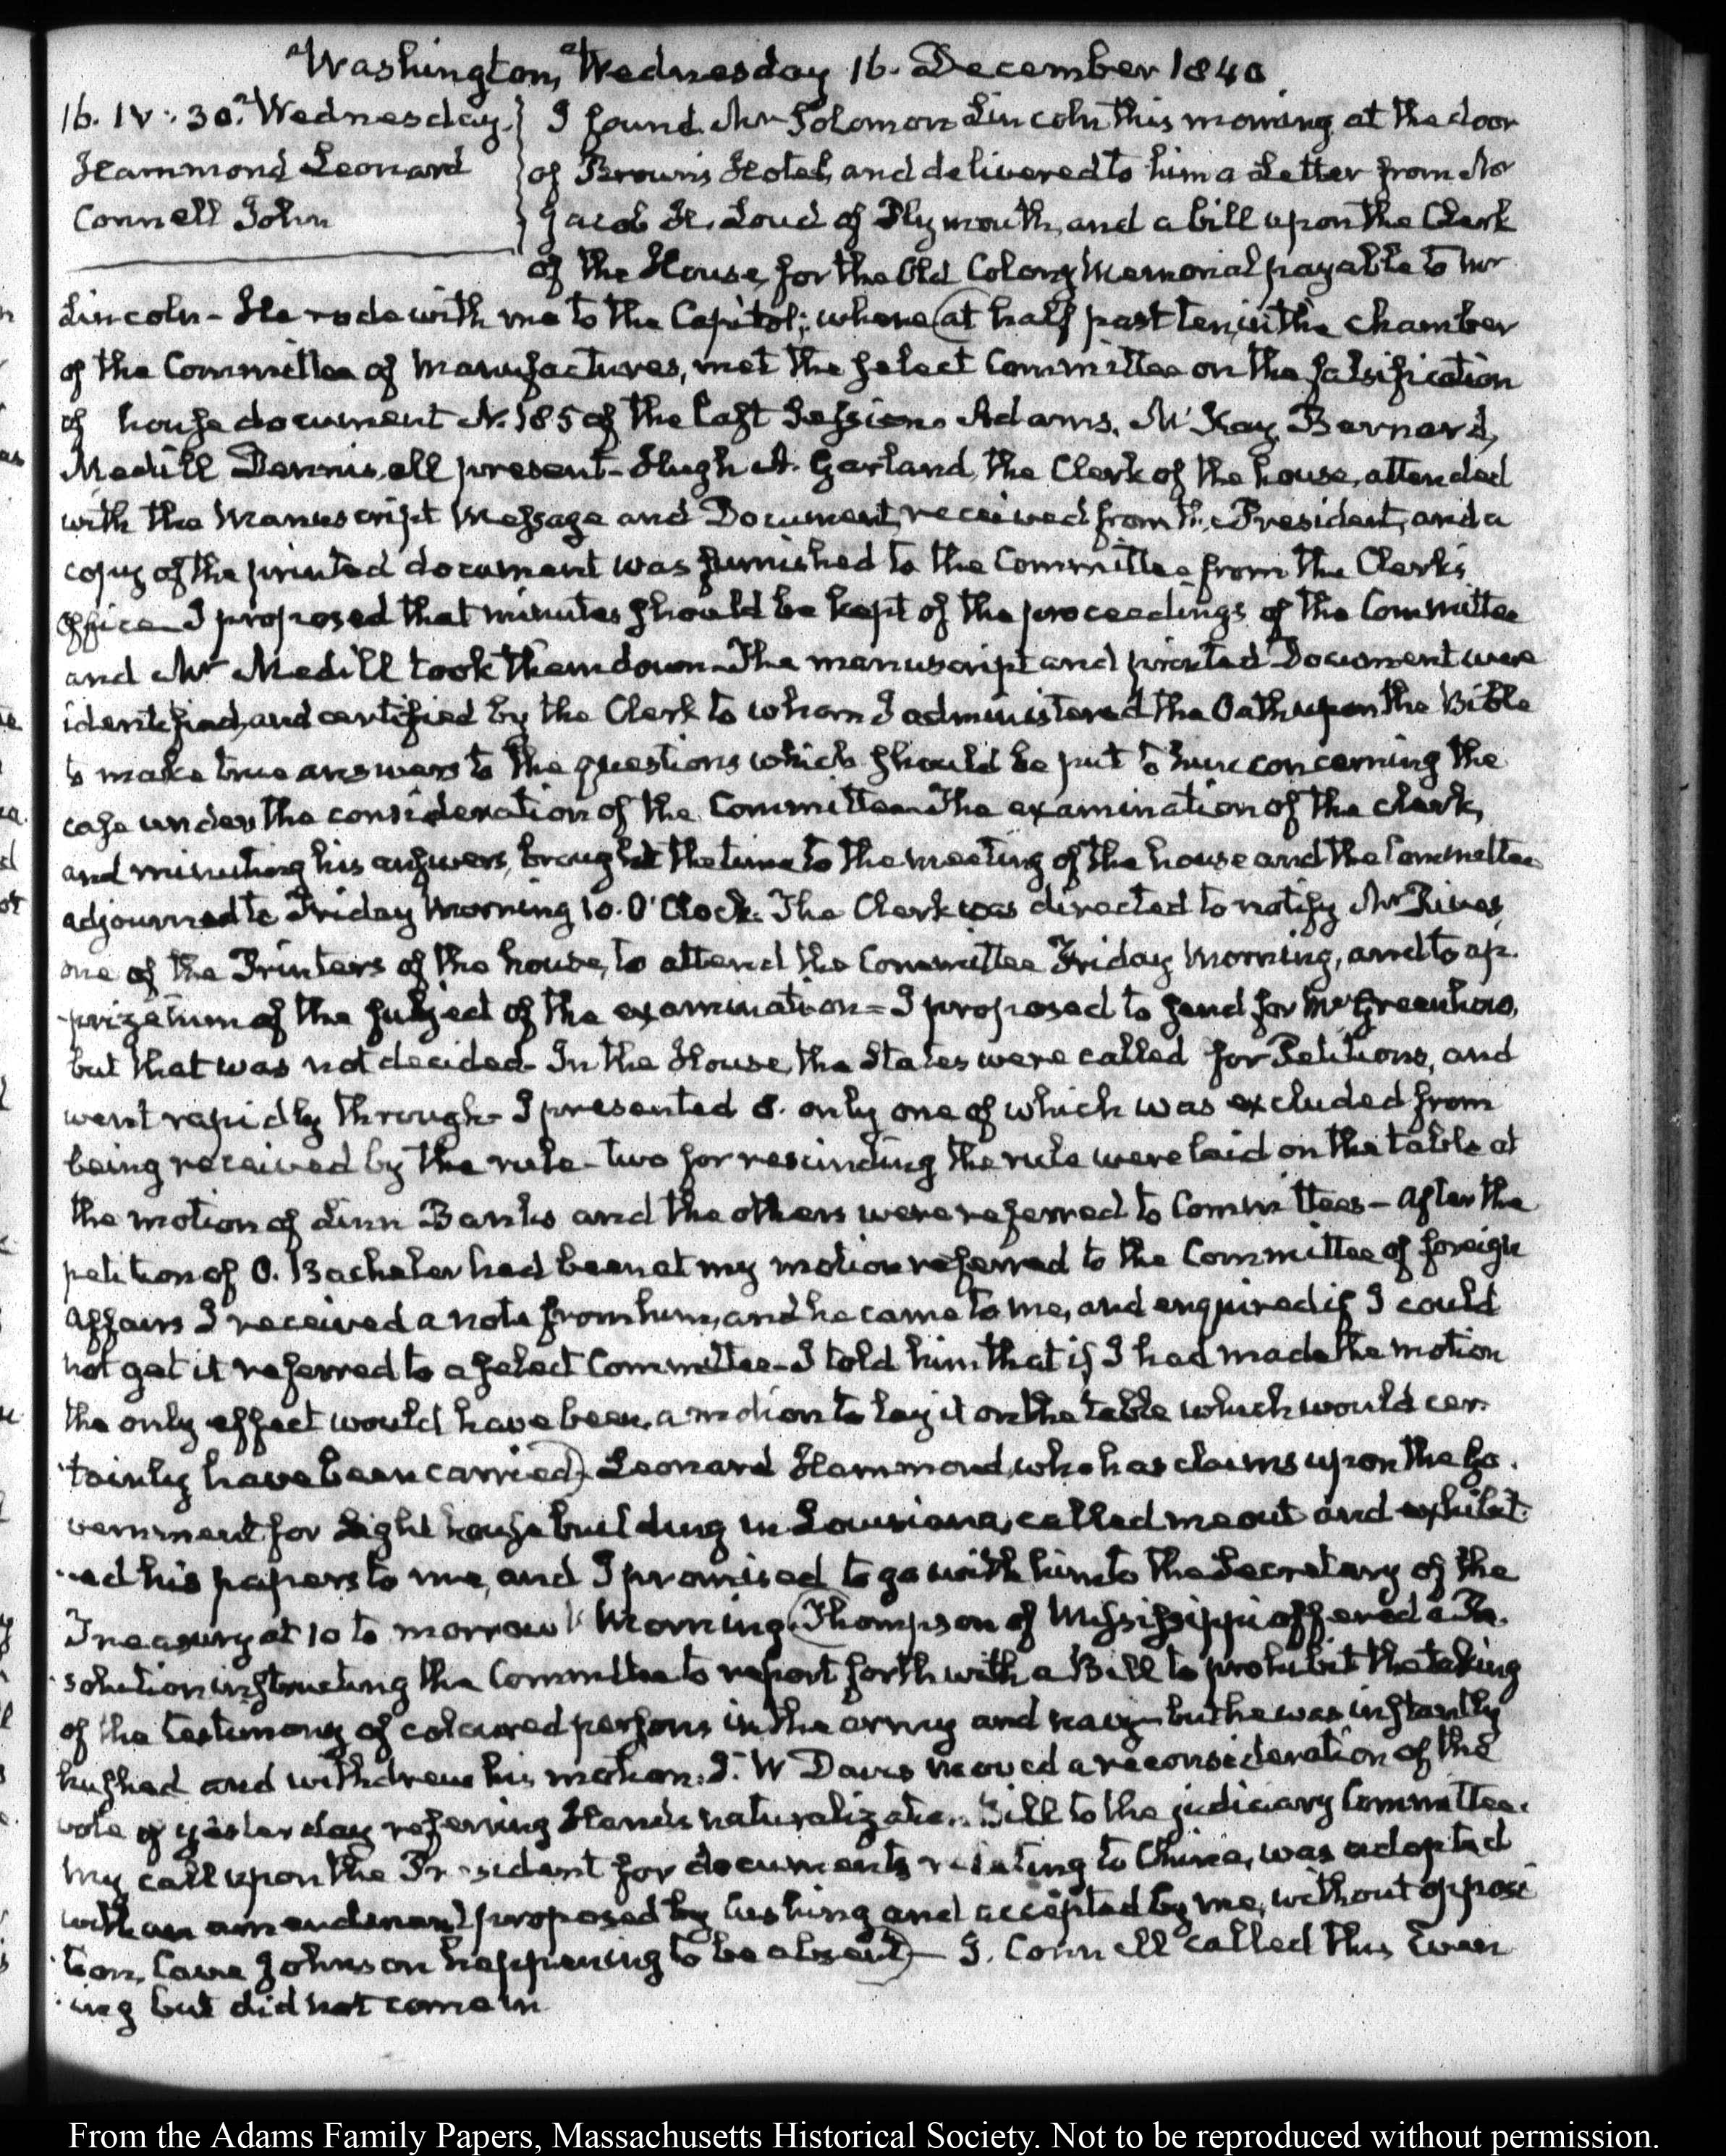 Washington, Wednesday 16. December 1840
16. IV: 30. Wednesday.
Hammond Leonard
Connell John
I found Mr Solomon Lincoln this morning at the door
of Brown's Hotel, and delivered to him a Letter from Mr
Jacob H. Loud of Plymouth, and a bill upon the Clerk
of the House, for the Old Colony Memorial payable to Mr
Lincoln - He rode with me to the Capitol; where (at half past ten, in the chamber
of the Committee of Manufactures, met the select Committee on the falsification
of house document N. 185 of the last Session. Adams, McKay, Barnard,
Medill Dennis, all present - Hugh A. Garland, the Clerk of the house, attended
with the Manuscript Message and Document, received from the President, and a
copy of the printed document was furnished to the Committee from the Clerk's
Office - I proposed that minutes should be kept of the proceedings of the Committee
and Mr Medill took them down - The manuscript and printed Document were
identified, and certified by the Clerk to whom I administered the Oath upon the Bible
to make true answers to the questions which should be put to him concerning the
case under the consideration of the Committee - The examination of the clerk,
and minuting his answers, brought the time to the meeting of the house and the Committee
adjourned to Friday Morning 10. O'Clock. The Clerk was directed to notify Mr Rives,
one of the Printers of the house, to attend the Committee Friday Morning, and to ap-
-prize him of the subject of the examination = I proposed to send for Mr Greenhow,
but that was not decided - In the House, the States were called for Petitions, and
went rapidly through - I presented 8. only one of which was excluded from
being received by the rule - two for rescinding the rule were laid on the table at
the motion of Linn Banks and the others were referred to Committees - After the
petition of O. Bacheler had been at my motion referred to the Committee of foreign
Affairs I received a note from him, and he came to me, and enquired if I could
not get it referred to a select Committee - I told him that if I had made the motion
the only effect would have been a motion to lay it on the table which would cer-
-tainly have been carried) Leonard Hammond, who has claims upon the Go-
vernment for Light house building in Louisiana, called me out and exhibit-
-ed his papers to me, and I promised to go with him to the Secretary of the
Treasury at 10 to morrow Morning. (Thompson of Mississippi offered a Re-
-solution instructing the Committee to report forthwith a Bill to prohibit the taking
of the testimony of coloured persons in the army and navy - but he was instantly
hushed and withdrew his motion. J. W Davis moved a reconsideration of the
vote of yesterday referring Hand's naturalization Bill to the judiciary Committee.
My call upon the President for documents relating to China, was adopted
with an amendment proposed by Cushing and accepted by me, without opposi
-tion, Cave Johnson happening to be absent) - J. Connell called this Even
-ing but did not come in
From the Adams Family Papers, Massachusetts Historical Society. Not to be reproduced without permission.